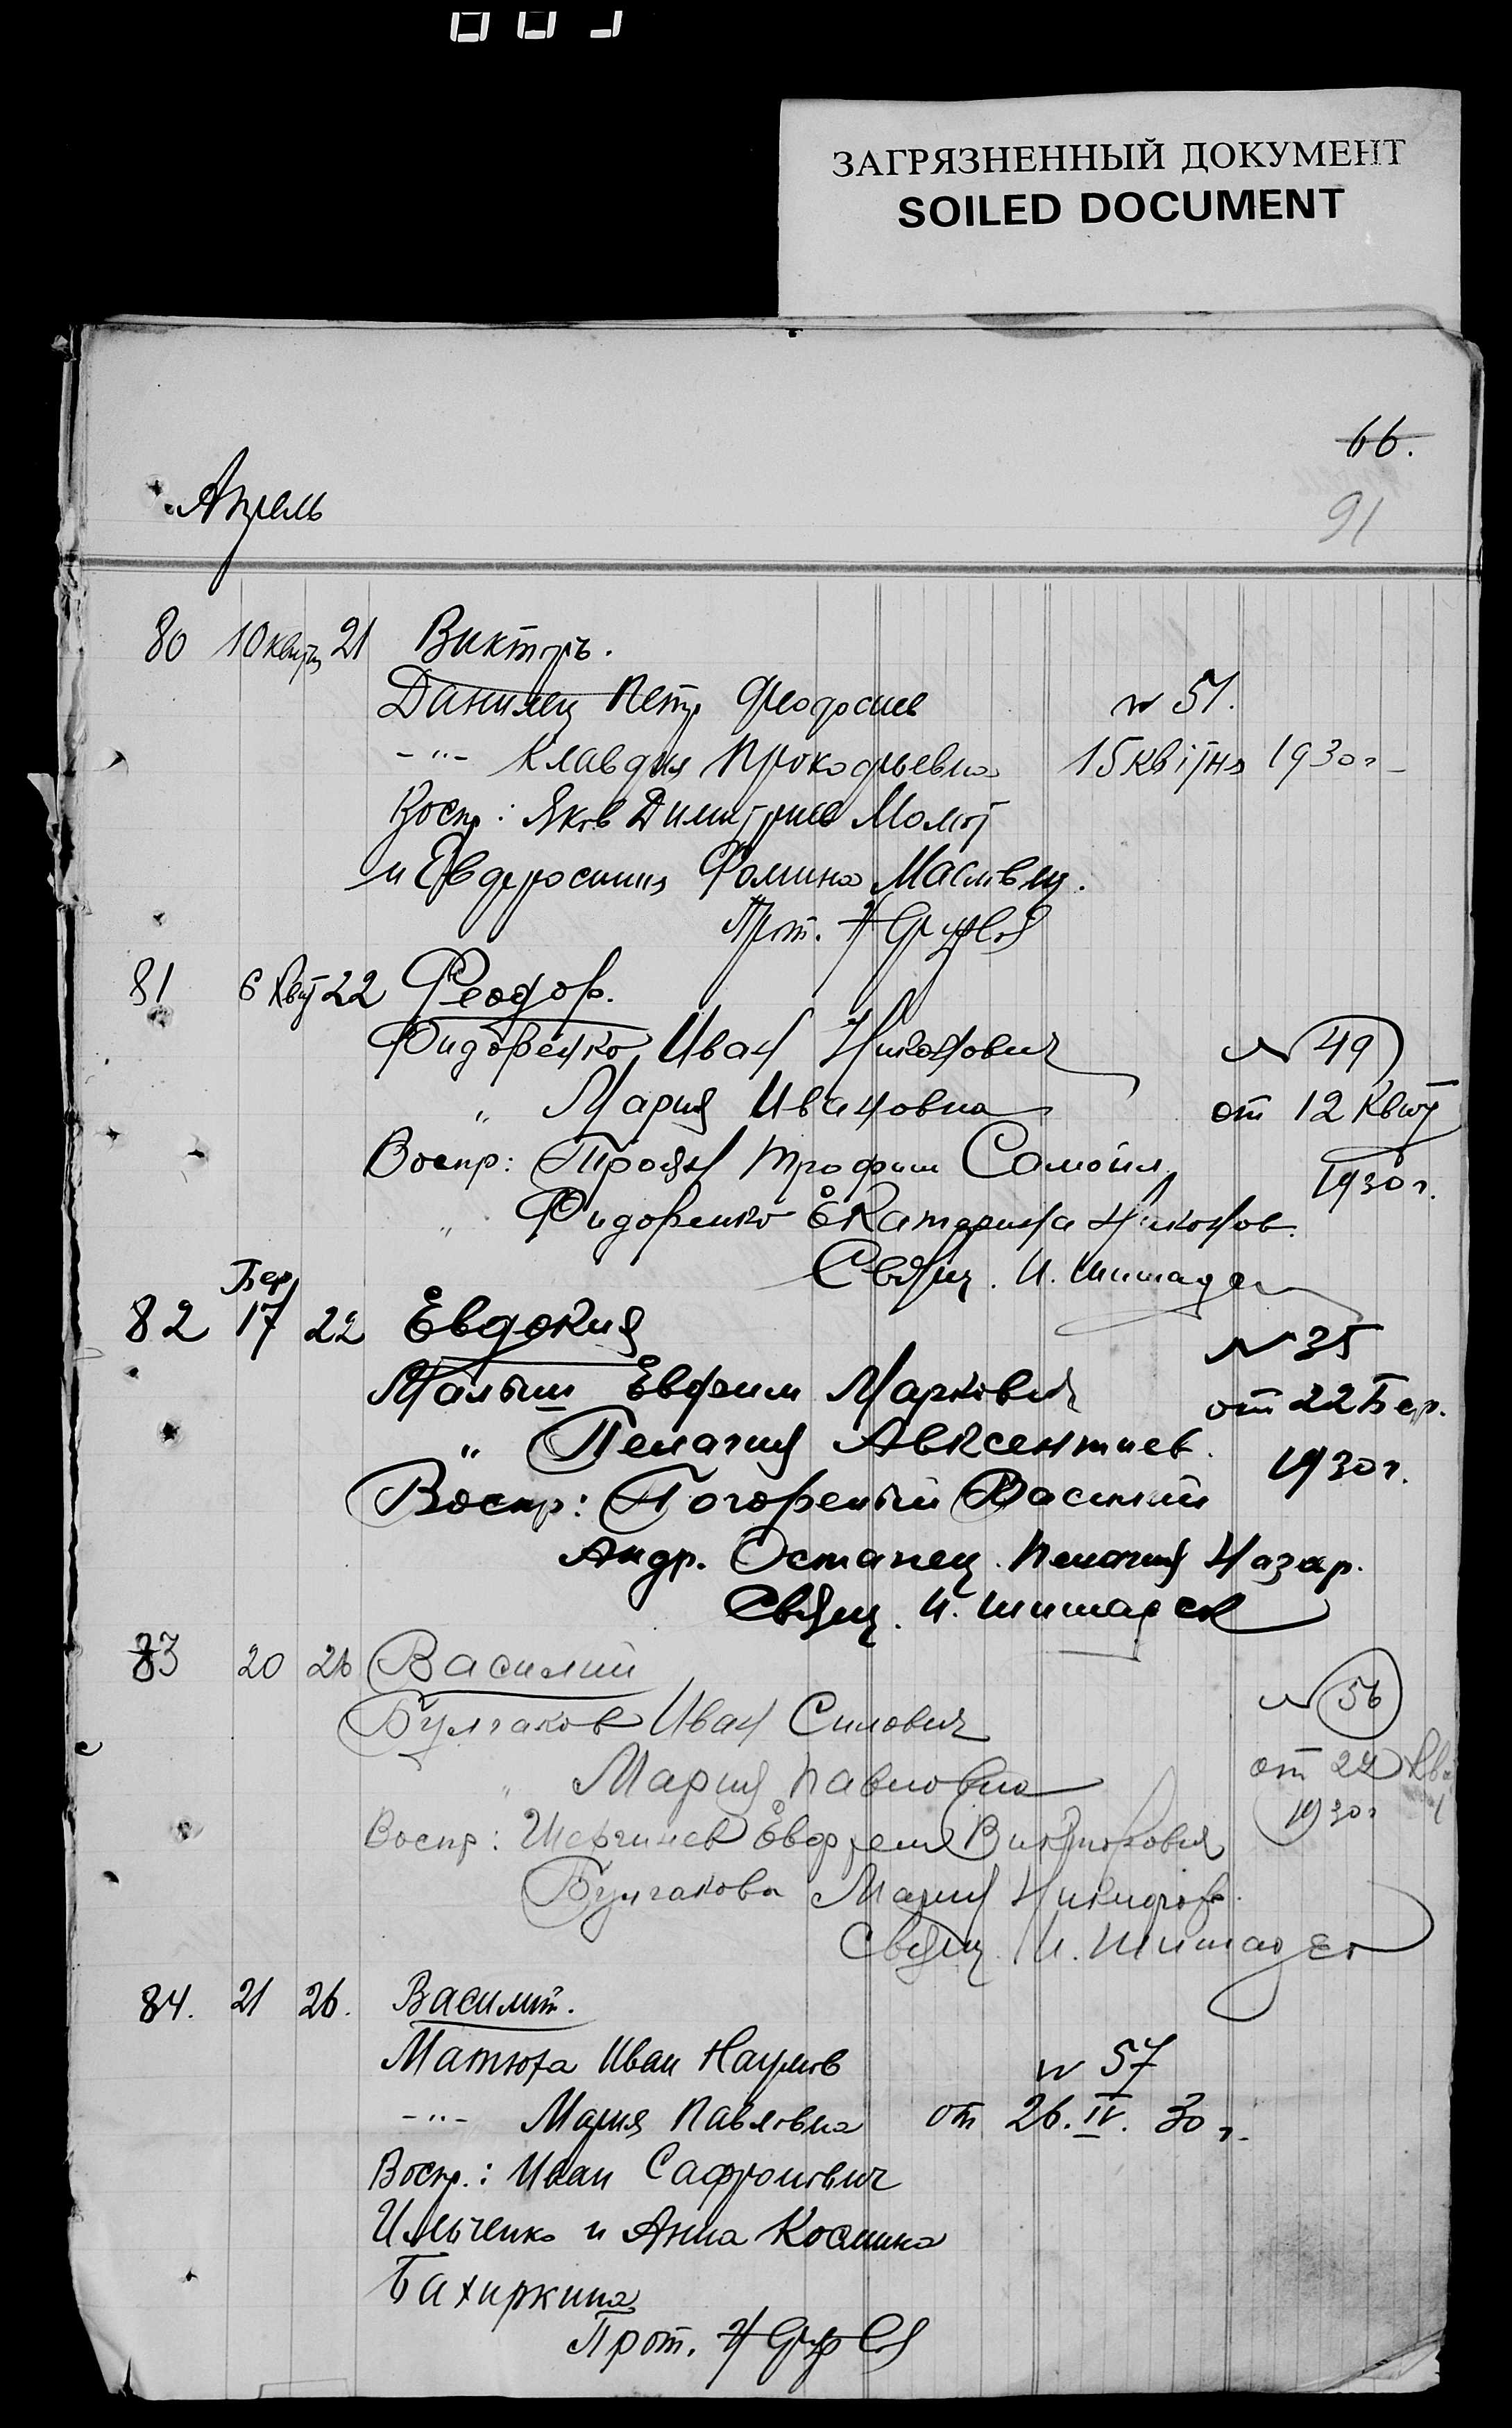 ЗАГРЯЗНЕННЫЙ ДОКУМЕНТ
SOILED DOCUMENT
66.
Апрель
91
80 10 квитн 21 Викторъ.
Данилец Петр Феодосиев № 51.
-"- Клавдия Прокофьевна 15 квітня 1930 г.
Воспр: Яков Димитриев Момот
и Евфросиния Фомина Масливец.
Прот.
81 6 Квіт 22 Феодор.
Фидоренко Иван Никонович № 49
" Мария Ивановна от 12 Квит
Воспр: Троян Трофим Самойл. 1930 г.
" Фидоренко Екатерина Никонов.
Свящ. И.
Бер
82 17 22 Евдокия № 35
Малыш Евфим Маркович от 22 Бер.
" Пелагия Авксентиев. 1930 г.
Воспр: Погорелый Василий
Андр. Останец Пелагия Назар.
Свящ. И.
83 20 26 Василий № 56
Булгаков Иван Силович от 24 Кв
" Мария Павловна 1930 г
Воспр: Евфрем Викторович
Булгакова Мария Никифор.
Свящ. И.
84. 21 26. Василий.
Матюха Иван Наумов № 57
-"- Мария Павловна от 26. IV. 30 г.
Воспр.: Иван Сафронович
Ильченко и Анна Космина
Бахиркина
Прот.